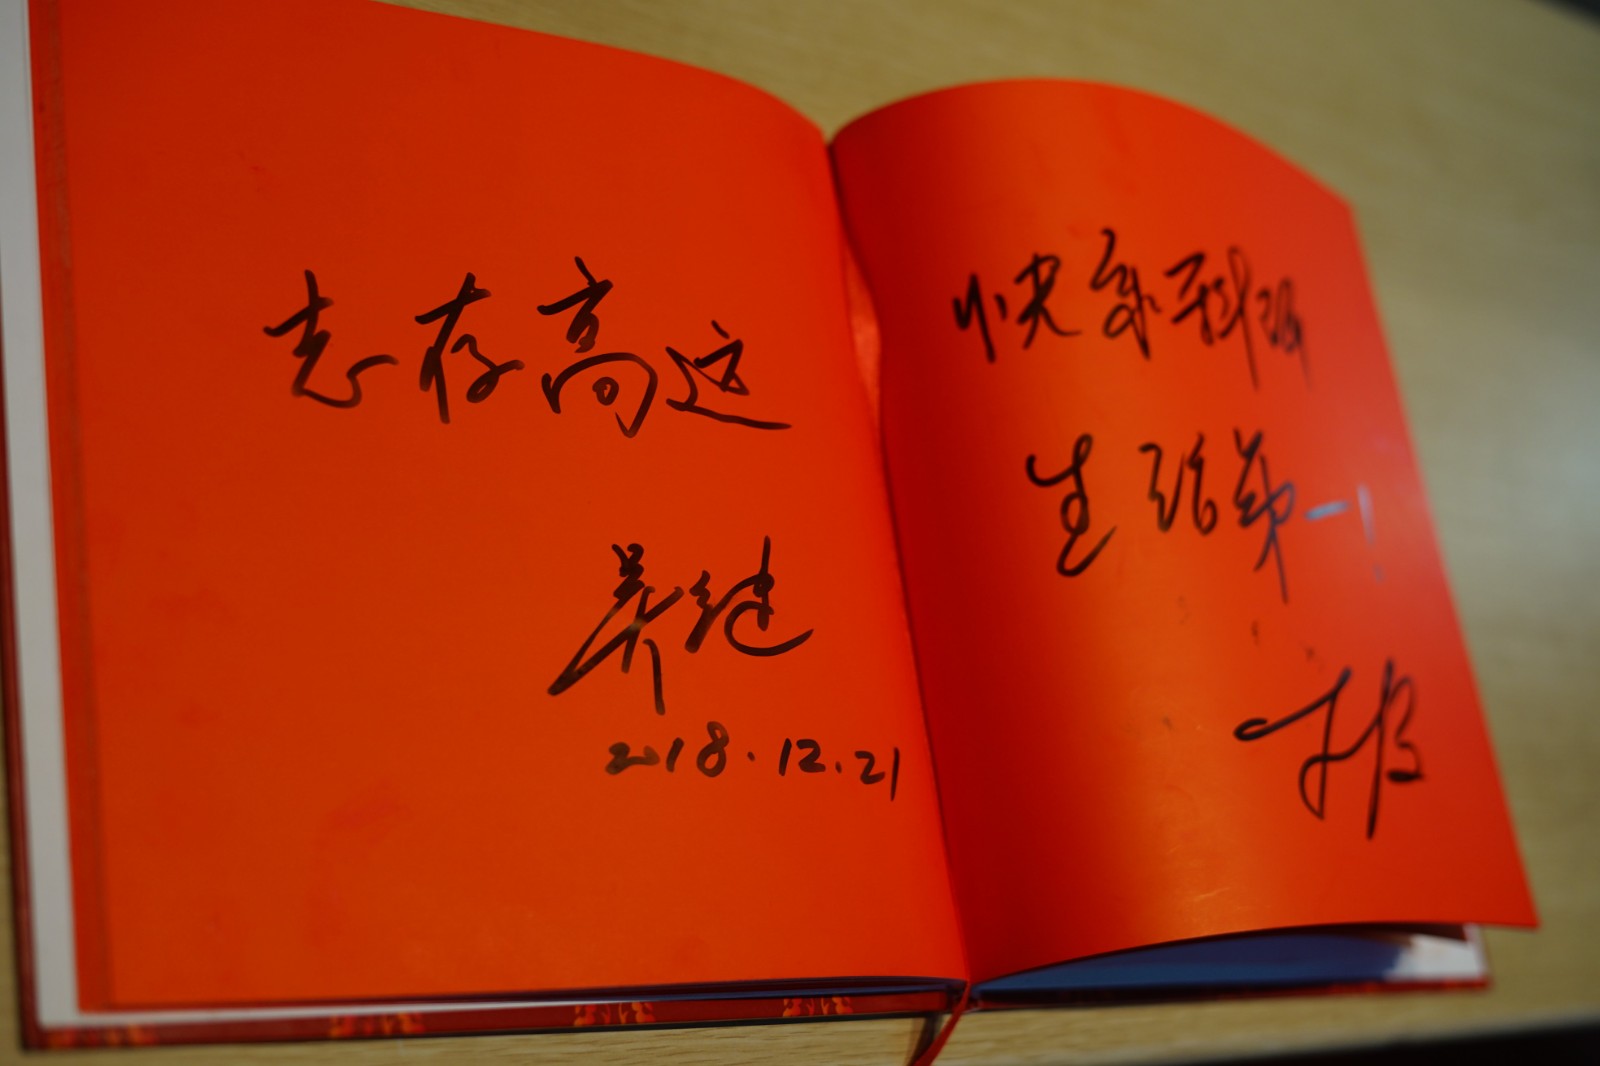 志存高远
吴继
2018.12.21
快乐科研
生活第一!